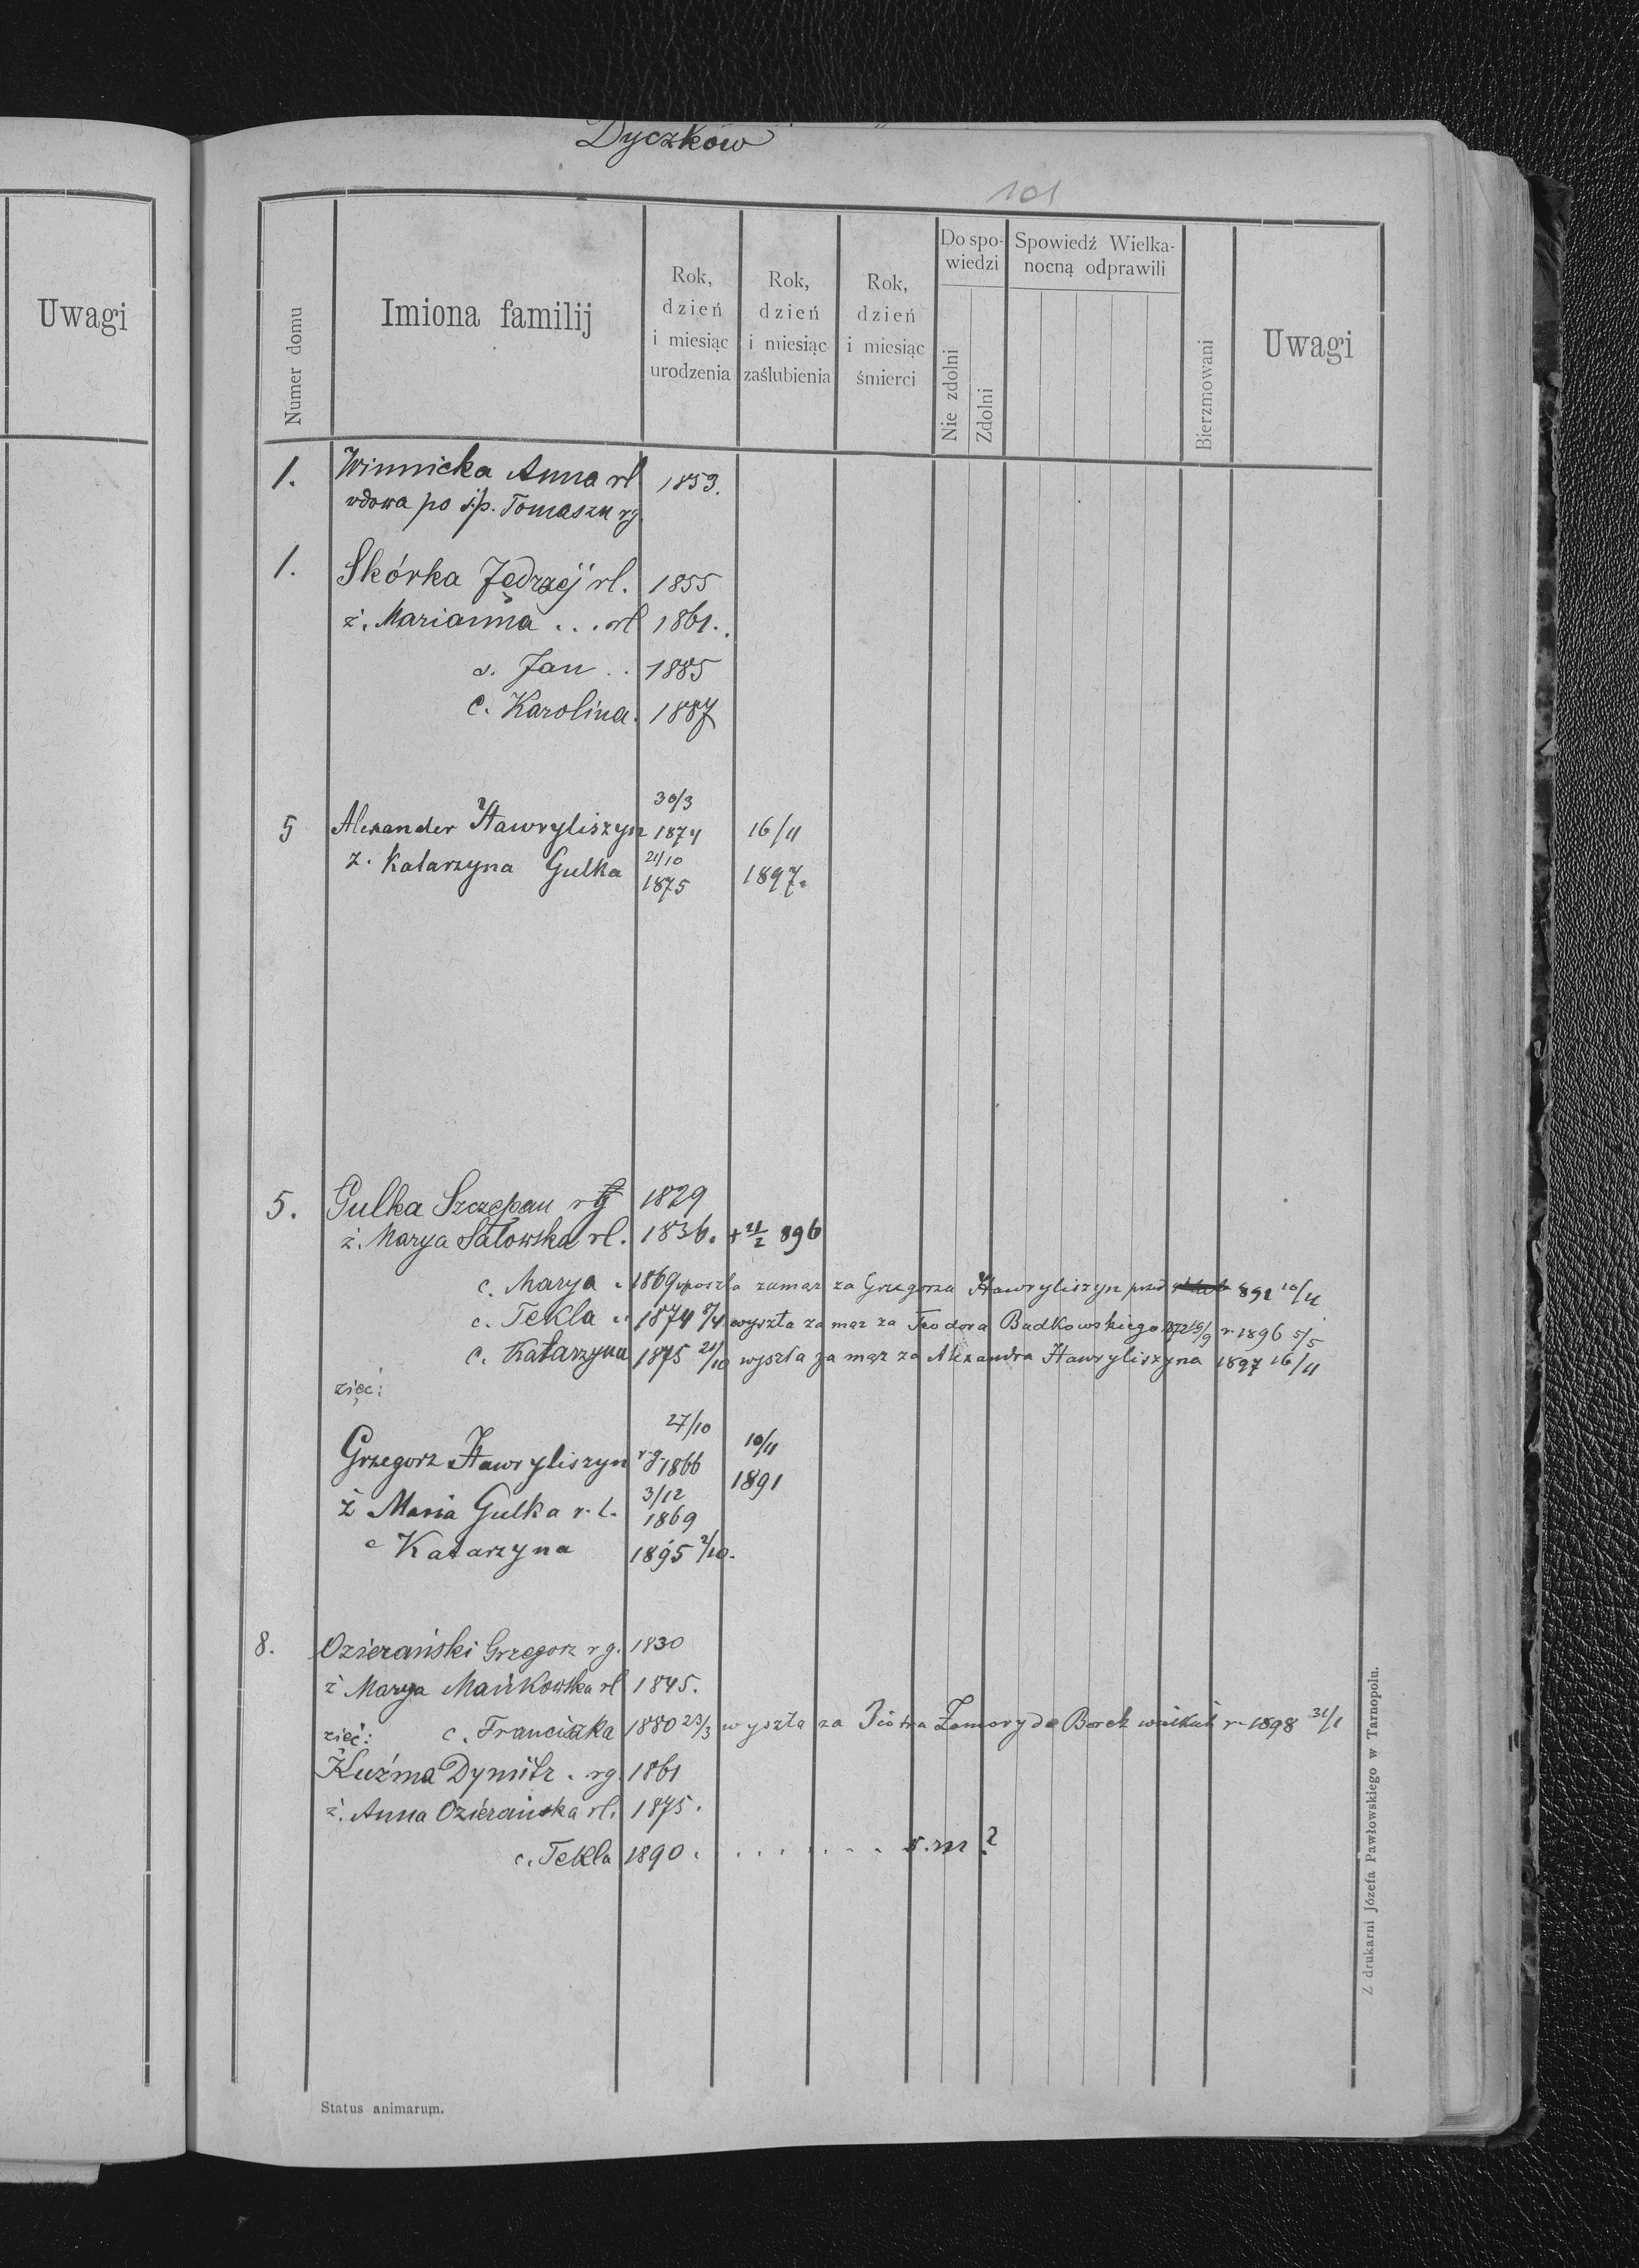 Dyczków
101
Uwagi
Numer domu
Imiona familij
Rok,
dzień
i miesiąc
urodzenia
Rok,
dzień
i miesiąc
zaślubienia
Rok,
dzień
i miesiąc
śmierci
Do spo-
wiedzi
Nie zdolni
Zdolni
Spowiedź Wielka-
nocną odprawili
Bierzmowani
Uwagi
1. Winnicka Anna rl 1853.
wdowa po ś.p. Tomaszu rg.
1. Skórka Jędrzej rl. 1855
ż. Marianna ... rl 1861.
s. Jan .. 1885
c. Karolina. 1887
30/3
5 Alexander Hawryliszyn 1874 16/11
ż. Katarzyna Gulka 21/10 1875 1897.
5. Gulka Szczepan rg 1829
ż. Marya Satowska rl. 1836. + 21/2 896
c. Marya . 1869 wyszła zamąż za Grzegorza Hawryliszyn 891 10/11
c. Tekla .. 1874 8/4 wyszła za mąż za Teodora Budkowskiego 872 15/9 r. 1896 5/5
c. Katarzyna 1875 21/10 wyszła za mąż za Alexandra Hawryliszyna 1897 16/11
zięć:
27/10 10/11
Grzegorz Hawryliszyn r.g. 1866 1891
ż Maria Gulka r. l. 3/12 1869
c Katarzyna 1895 2/10.
8. Ozierański Grzegorz rg. 1830
ż Marya Mańkowska rl 1845.
zięć: c. Franciszka 1880 23/3 wyszła za Piotra Zamory do Borek wielkich r. 1898 31/1
Kuźma Dymitr . rg. 1861
ż. Anna Ozierańska rl. 1875.
c. Tekla 1890 . . . . . . . . s.m ?
Status animarum.
Z drukarni Józefa Pawłowskiego w Tarnopolu.